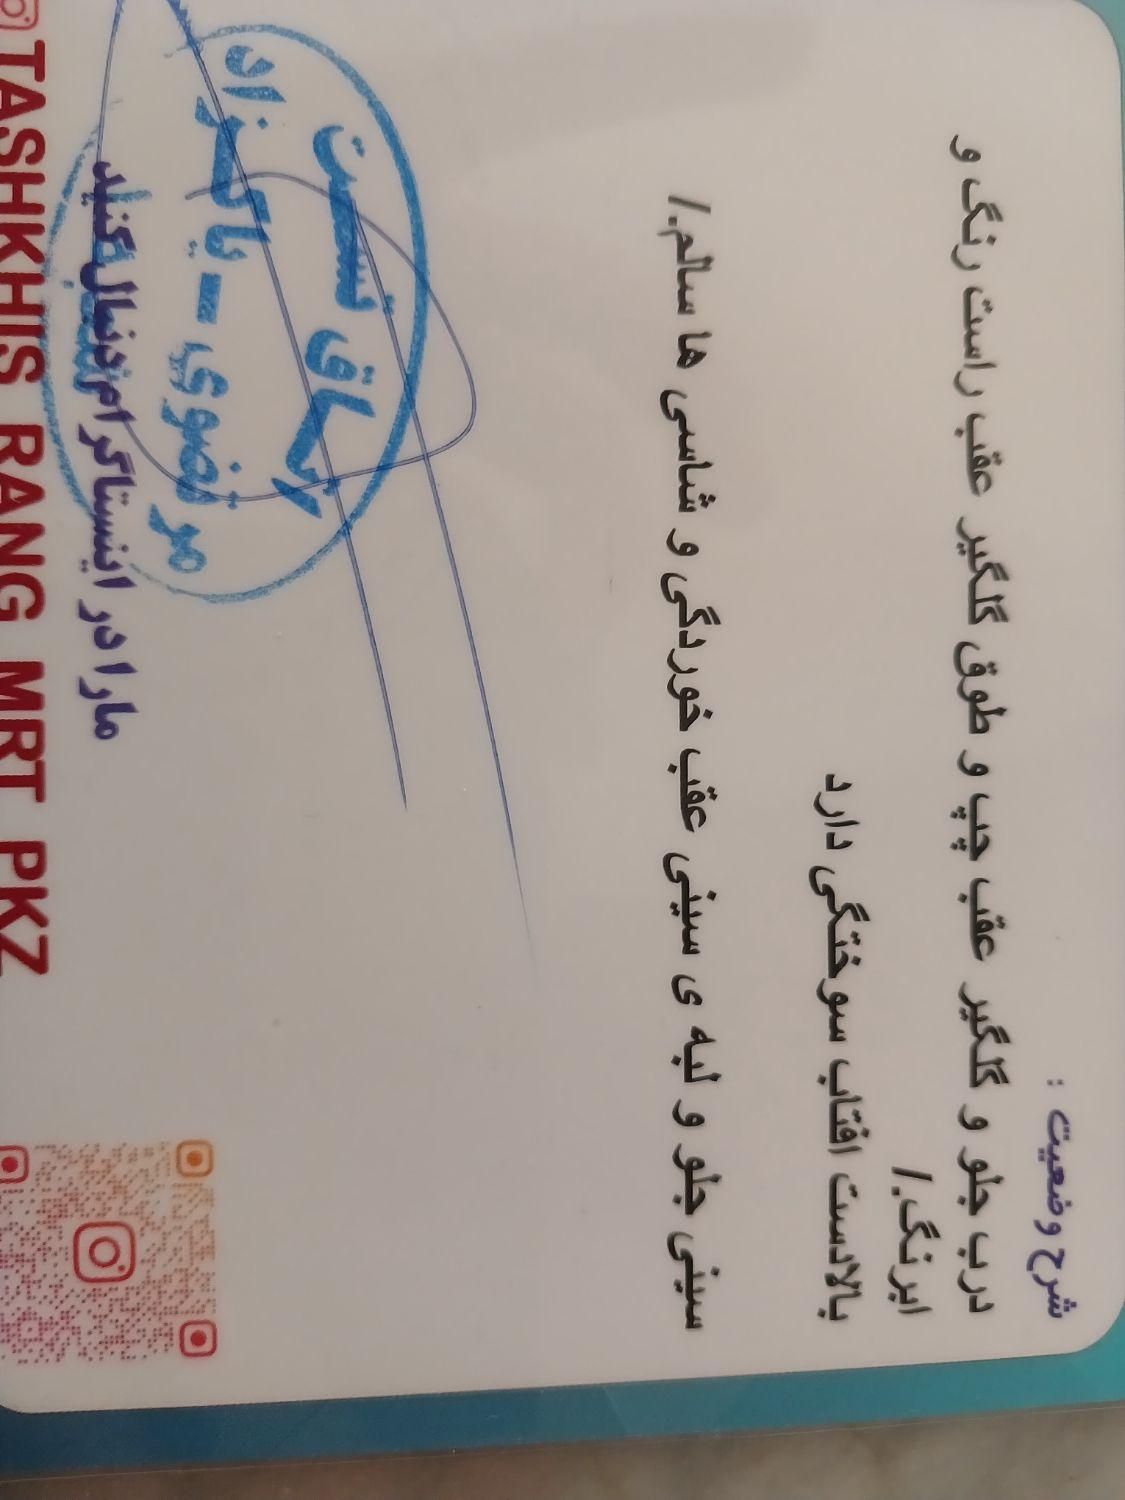 شرح وضعیت :
درب جلو و گلگیر عقب چپ و طوق گلگیر عقب راست رنگ و
ابرنگ./
بالادست افتاب سوختگی دارد
سینی جلو و لبه ی سینی عقب خوردگی و شاسی ها سالم./
تست
مرتضوی - پاکزاد
ما را در اینستاگرام دنبال کنید
TASHKHIS RANG MRT PKZ